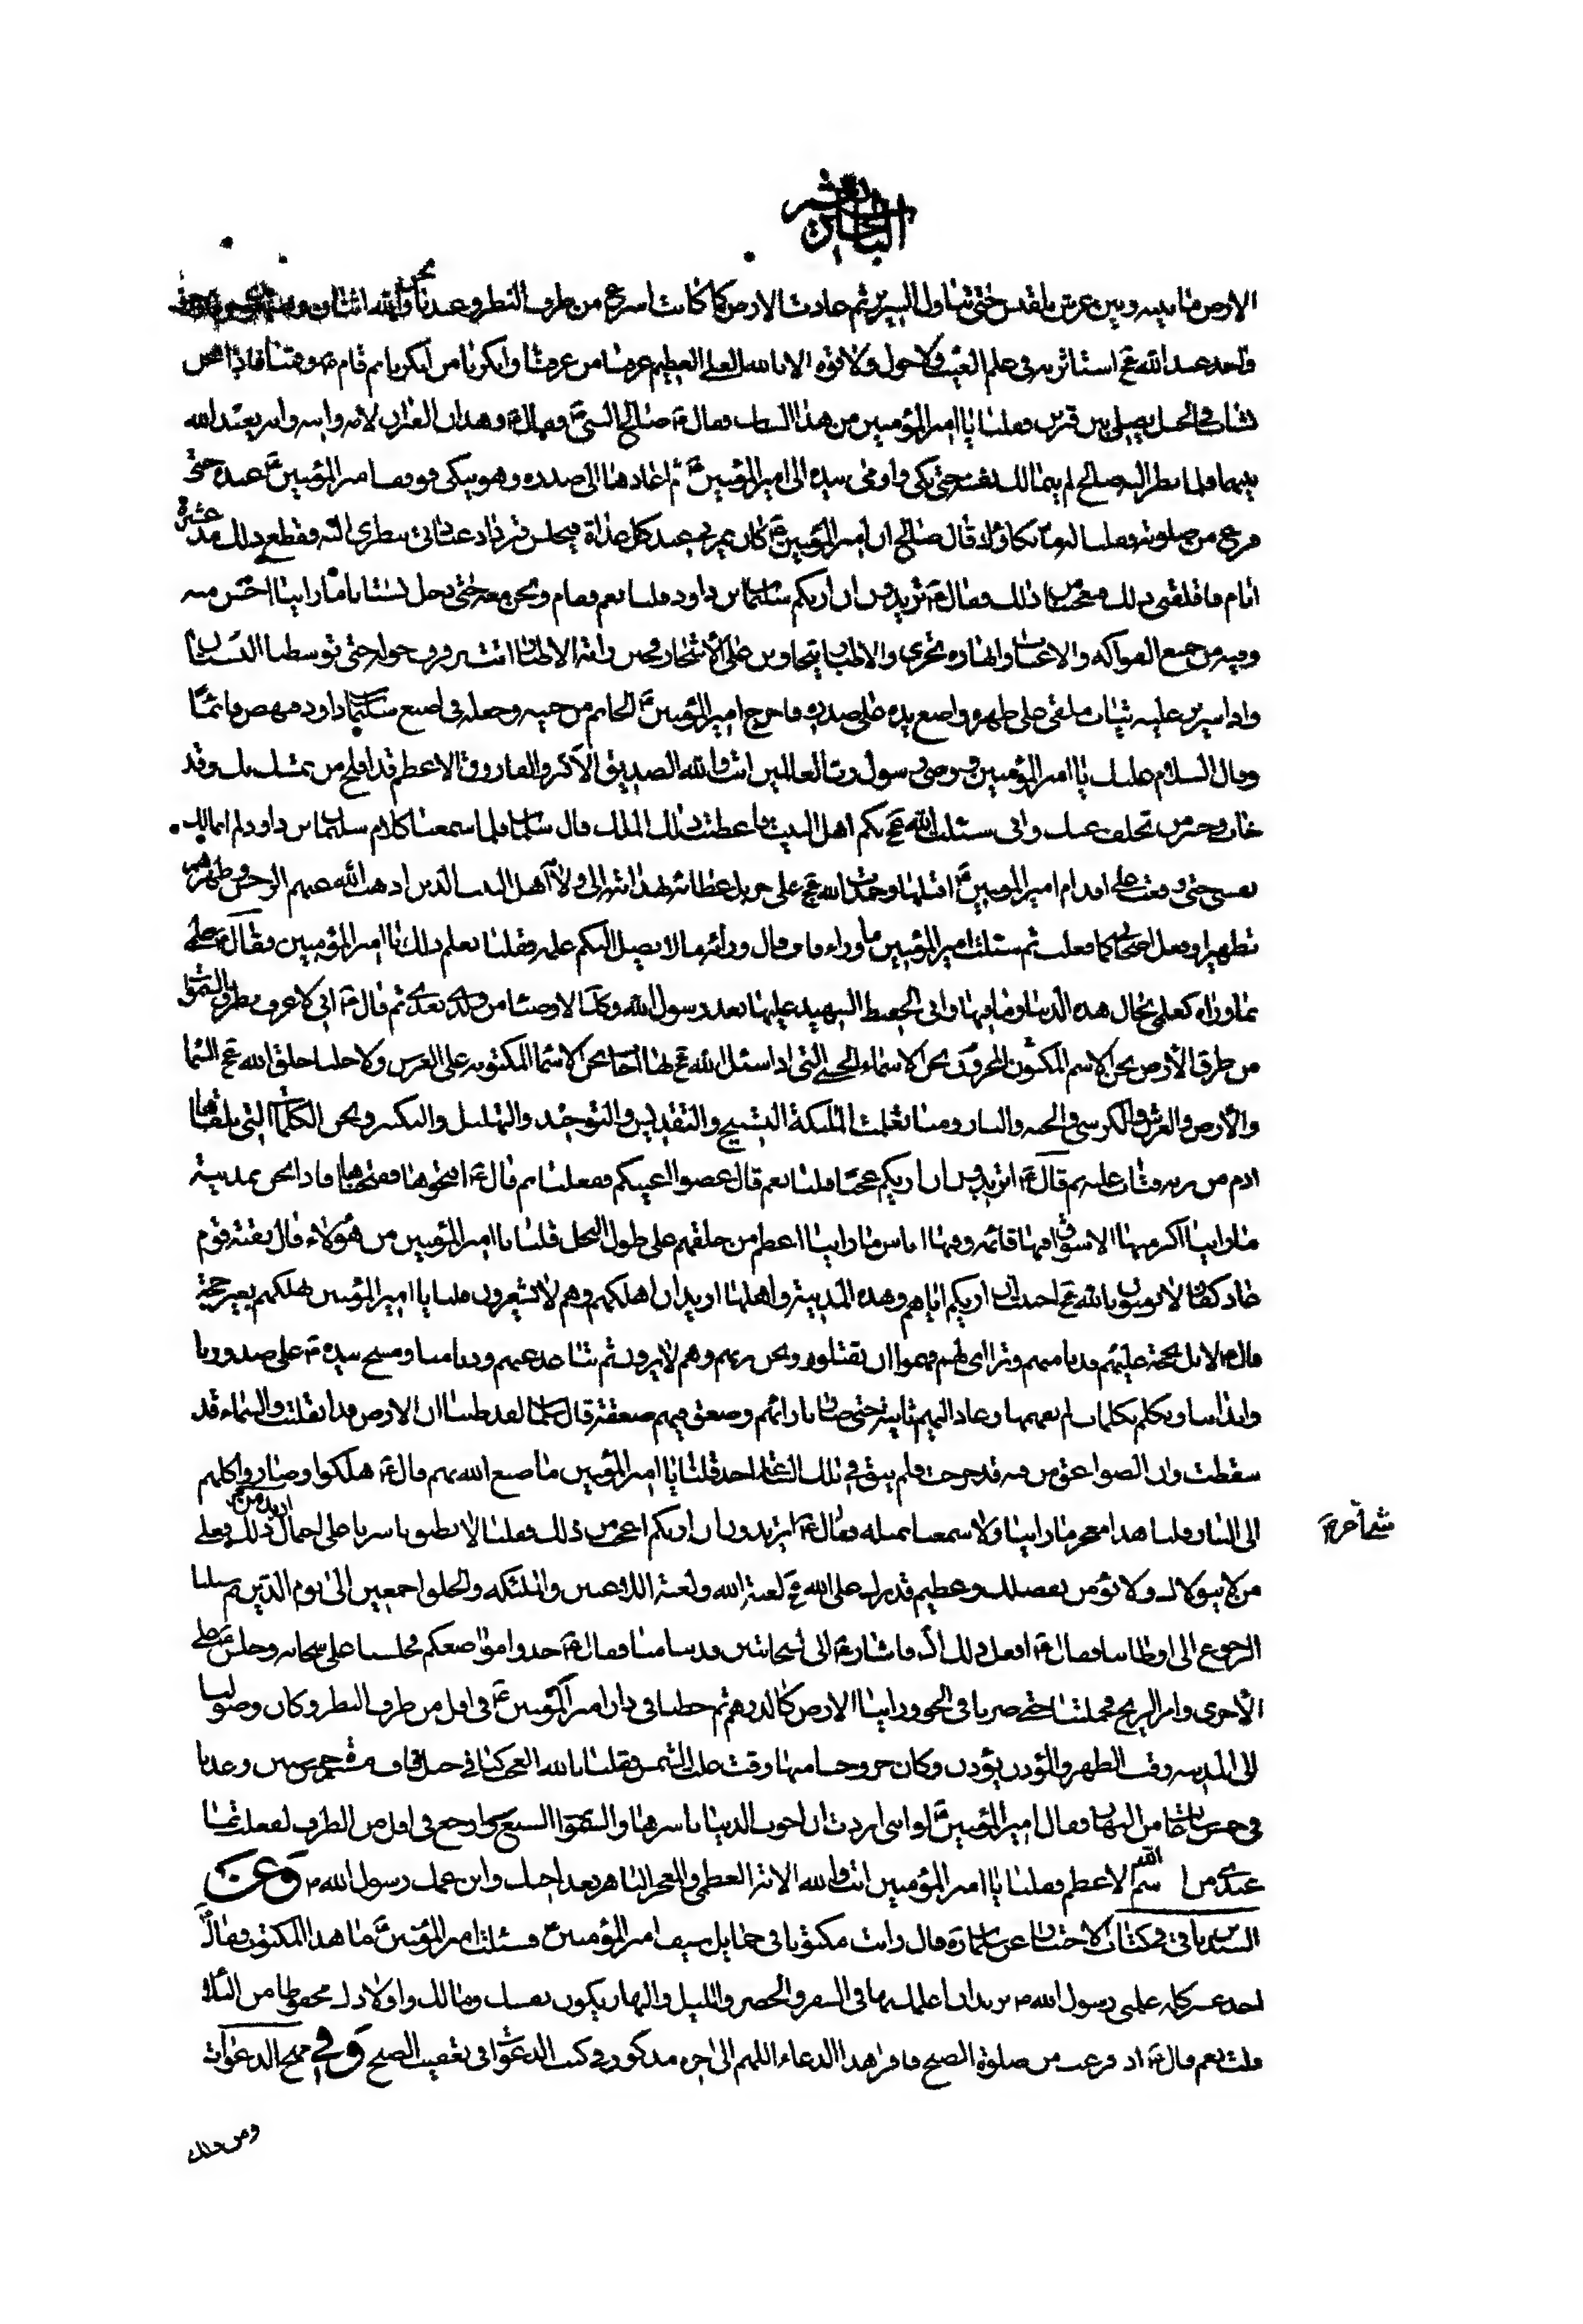 الباب الثاني عشر
الارض ما بينه وبين عرش بلقيس حتى تناول السرير ثم عادت الارض كما كانت اسرع من طرف النظر وعندنا نحن والله اثنان وسبعون حرفا
واحد عند الله عج استاثر به في علم الغيب ولا حول ولا قوة الا بالله العلي العظيم عرفنا من عرفنا وانكرنا من انكرنا ثم قام ع وقمنا فاذا نحن
بشاب في الجبل يصلي بين قبرين فقلنا يا امير المؤمنين من هذا الشاب فقال ع صالح النبي ع وهذان القبران لامه وابيه وانه يعبد الله
بينهما فلما نظر اليه صالح لم يتمالك نفسه حتى بكى واومى بيده الى امير المؤمنين ع ثم اعادها الى صدره وهو يبكي فوقف امير المؤمنين ع عنده حتى
فرغ من صلوته فقلنا له ما بكاؤك قال صالح ان امير المؤمنين ع كان يمر بي عند كل غداة فيجلس فتزداد عبادتي بنظري اليه فقطع ذلك مذ عشرة
ايام فاقلقني ذلك فتعجبنا من ذلك فقال ع تريدون ان اريكم سليمان بن داود قلنا نعم فقام ونحن معه حتى دخل بستانا ما راينا احسن منه
وفيه من جميع الفواكه والاعناب وانهاره تجري والاطيار يتجاوبن على الاشجار فحين راته الاطيار اتت ترفرف حوله حتى توسطنا البستان
واذا سرير عليه شاب ملقى على ظهره واضع يده على صدره فاخرج امير المؤمنين ع الخاتم من جيبه وجعله في اصبع سليمان بن داود فنهض قائما
وقال السلام عليك يا امير المؤمنين ووصي رسول رب العالمين انت والله الصديق الاكبر والفاروق الاعظم قد افلح من تمسك بك وقد
خاب وخسر من تخلف عنك واني سئلت الله عج بكم اهل البيت فاعطيت ذلك الملك قال سلمان فلما سمعنا كلام سليمان بن داود لم اتمالك
نفسي حتى وقعت على اقدام امير المؤمنين ع اقبلها وحمدت الله عج على جزيل عطائه بهدايته الى ولاية اهل البيت الذين اذهب الله عنهم الرجس وطهرهم
تطهيرا وفعل اصحابي كما فعلت ثم سئلت امير المؤمنين ما وراء قاف قال وراءه ما لا يصل اليكم علمه فقلنا تعلم ذلك يا امير المؤمنين فقال ع علمي
بما وراه كعلمي بحال هذه الدنيا وما فيها واني الحفيظ الشهيد عليها بعد رسول الله وكذا الاوصيا من ولدي بعدي ثم قال ع اني لاعرف بطرق السموات
من طرق الارض نحن الاسم المكنون المخزون نحن الاسماء الحسنى التي اذا سئل الله عج بها اجاب نحن الاسما المكتوبة على العرش ولاجلنا خلق الله عج السما
والارض والعرش والكرسي والجنة والنار ومنا تعلمت الملئكة التسبيح والتقديس والتوحيد والتهليل والتكبير ونحن الكلمات التي تلقاها
ادم من ربه فتاب عليه ثم قال ع اتريدون ان اريكم عجبا قلنا نعم قال غضوا اعينكم ففعلنا ثم قال ع افتحوها ففتحناها فاذا نحن بمدينة
ما راينا اكبر منها الاسواق فيها قائمة وفيها اناس ما راينا اعظم من خلقهم على طول النخل قلنا يا امير المؤمنين من هؤلاء قال بقية قوم
عاد كفار لا يؤمنون بالله عج احببت ان اريكم اياهم وهذه المدينة واهلها اريد ان اهلكهم وهم لا يشعرون قلنا يا امير المؤمنين تهلكهم بغير حجة
قال ع لا بل بحجة عليهم فدنا منهم وتراءى لهم فهموا ان يقتلوه ونحن نريهم وهم لا يرون ثم تباعد عنهم ودنا منا ومسح بيده ع على صدورنا
وابداننا وتكلم بكلمات لم نفهمها وعاد اليهم ثانية حتى صار بازائهم وصعق فيهم صعقة قال سلمان لقد ظننا ان الارض قد انقلبت والسماء قد
سقطت وان الصواعق من فيه قد خرجت فلم يبق في تلك الساعة احد قلنا يا امير المؤمنين ما صنع الله بهم قال ع هلكوا وصاروا كلهم
الى النار قلنا هذا معجز ما راينا ولا سمعنا بمثله فقال ع اتريدون ان اريكم اعجب من ذلك فقلنا لا نطيق باسرنا على احتمال ازيد من ذلك فعلى
من لا يتولاك ولا يؤمن بفضلك وعظيم قدرك على الله عج لعنة الله ولعنة اللاعنين والملئكة والخلق اجمعين الى يوم الدين ثم سئلنا
الرجوع الى اوطاننا فقال ع افعل ذلك انشاء الله فاشار ع الى السحابتين فدنتا منا فقال ع خذوا مواضعكم فجلسنا على سحابة وجلس ع على
الاخرى وامر الريح فحملتنا حتى صرنا في الجو وراينا الارض كالدرهم ثم حطتنا في دار امير المؤمنين ع في اقل من طرف النظر وكان وصولنا
الى المدينة وقت الظهر والمؤذن يؤذن وكان خروجنا منها وقت علت الشمس فقلنا بالله العجب كنا في جبل قاف مسيرة خمس سنين وعدنا
في خمس ساعات من النهار فقال امير المؤمنين ع لو انني اردت ان اجوب الدنيا باسرها والسموات السبع وارجع في اقل من الطرف لفعلت بما
عندي من اسم الله الاعظم فقلنا يا امير المؤمنين انت والله الاية العظمى والمعجز الباهر بعد اخيك وابن عمك رسول الله ص وعن
السيد بن باقي في كتاب الاختيار عن سلمان ره قال رايت مكتوبا في حمايل سيف امير المؤمنين ع فسئلت امير المؤمنين ع ما هذا المكتوب فقال
احد عشر كلمة علمني رسول الله ص تريد ان اعلمك بها في السفر والحضر والليل والنهار يكون نفسك ومالك واولادك محفوظا من البلاء
قلت نعم قال ع اذا فرغت من صلوة الصبح فاقرا هذا الدعاء اللهم الى اخره مذكور في كتب الدعوات في تعقيب الصبح وفي مهج الدعوات
ومن ذلك